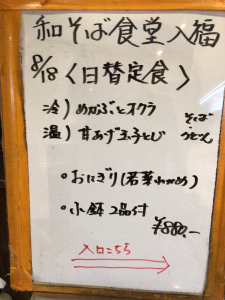 和そば食堂入福
8/18〈日替定食〉
冷）めかぶとオクラ
温）甘あげ玉子とじ
そば
うどん
・おにぎり(若菜わかめ)
・小鉢2品付
¥880.-
入口こちら